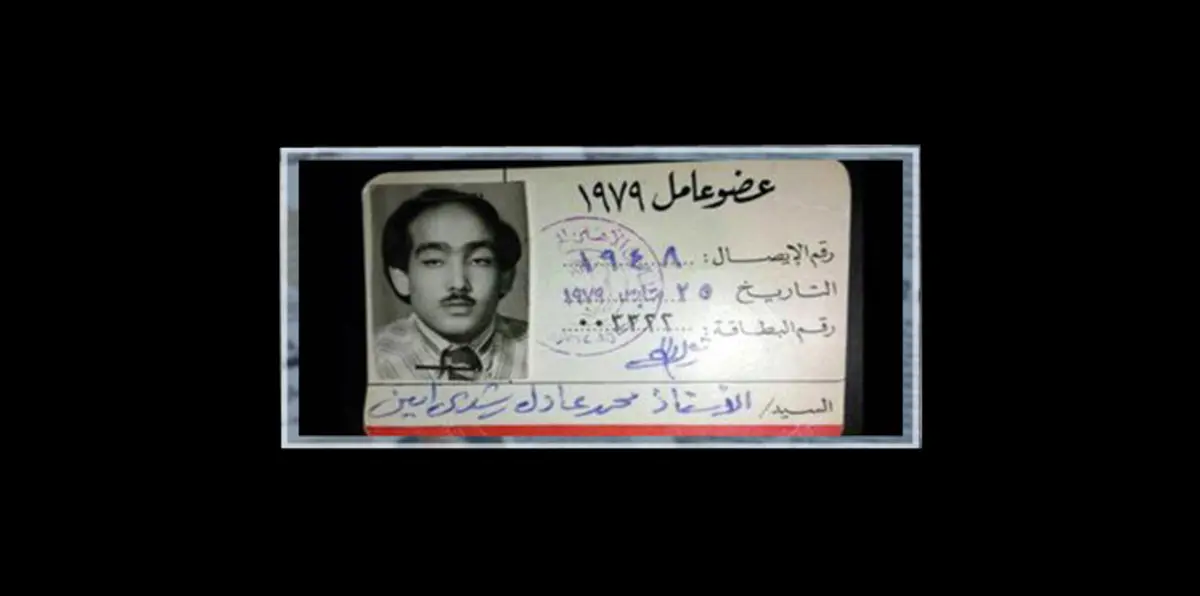 عضو عامل ١٩٧٩
رقم الإيصال: ١٩٤٨
التاريخ ٢٥ مارس ١٩٧٩
رقم البطاقة: ٠٠٣٣٢٢
السيد/ الأستاذ محمد عادل رشدى امين